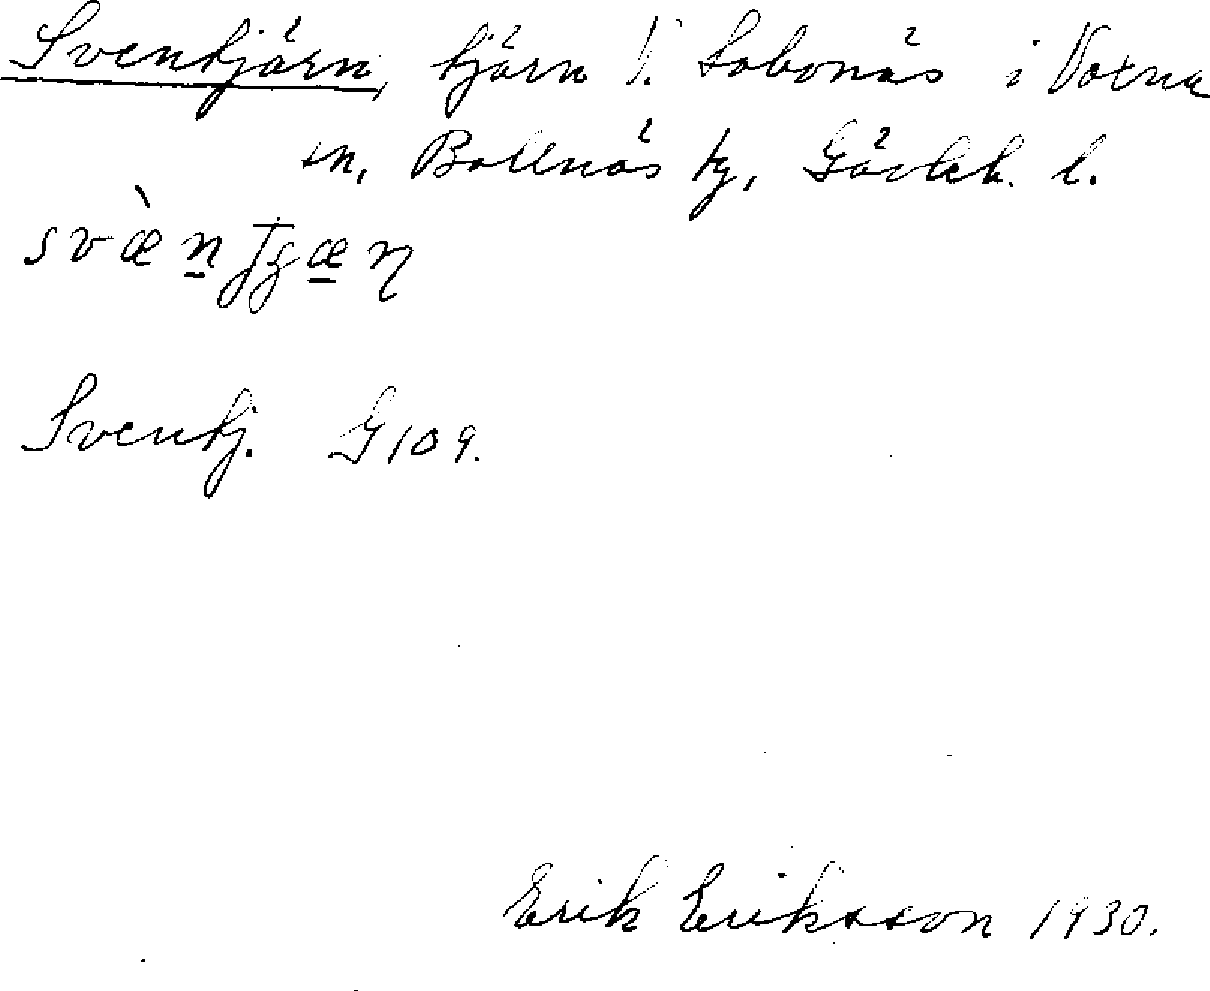 Sventjärn, tjärn V. Sabonäs i Voxna
sn, Bollnäs tg, Gävleb. l.
Sventj. G 109.
Erik Eriksson 1930.